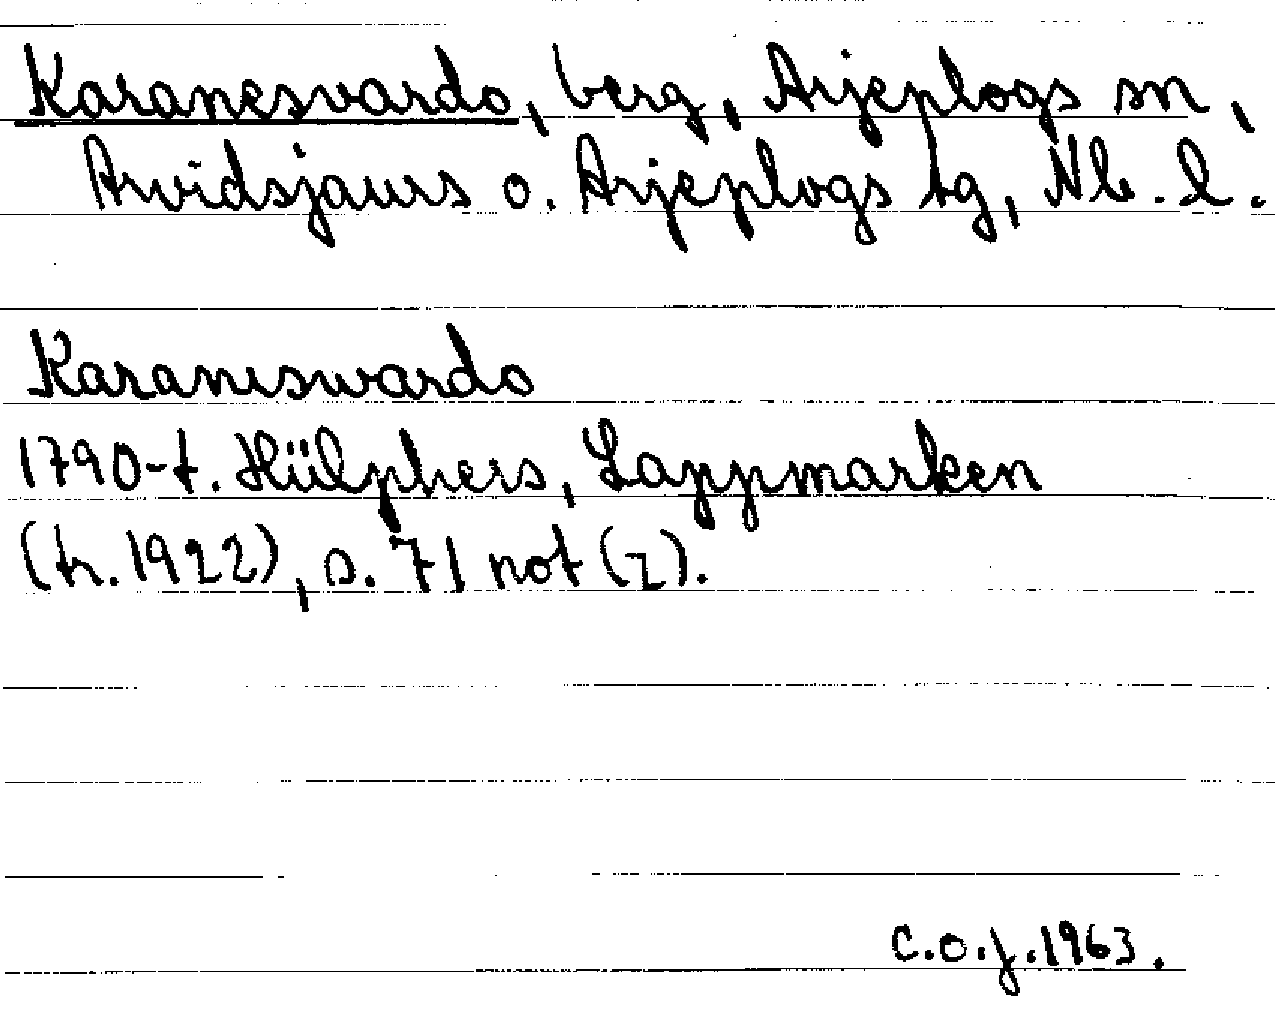 Karanesvardo, berg, Arjeplogs sn,
Arvidsjaurs o. Arjeplogs tg, Nb. l.
Karaneswardo
1790-t. Hülphers, Lappmarken
(tr. 1922), s. 71 not (z).
C.O.J. 1963.